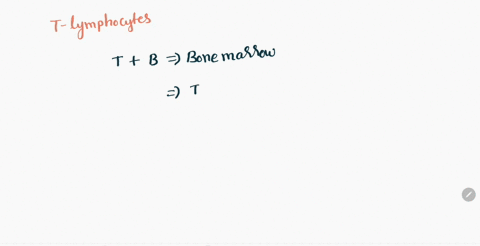 T-lymphocytes
T + B => Bone marrow
=> T